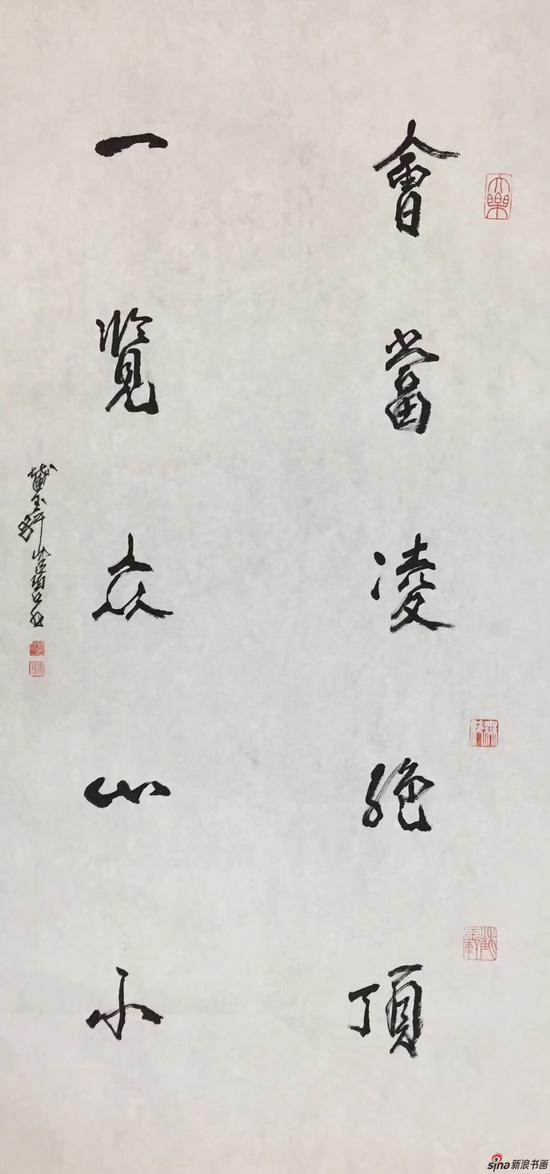 會當凌絕頂
一覽众山小
sina新浪书画